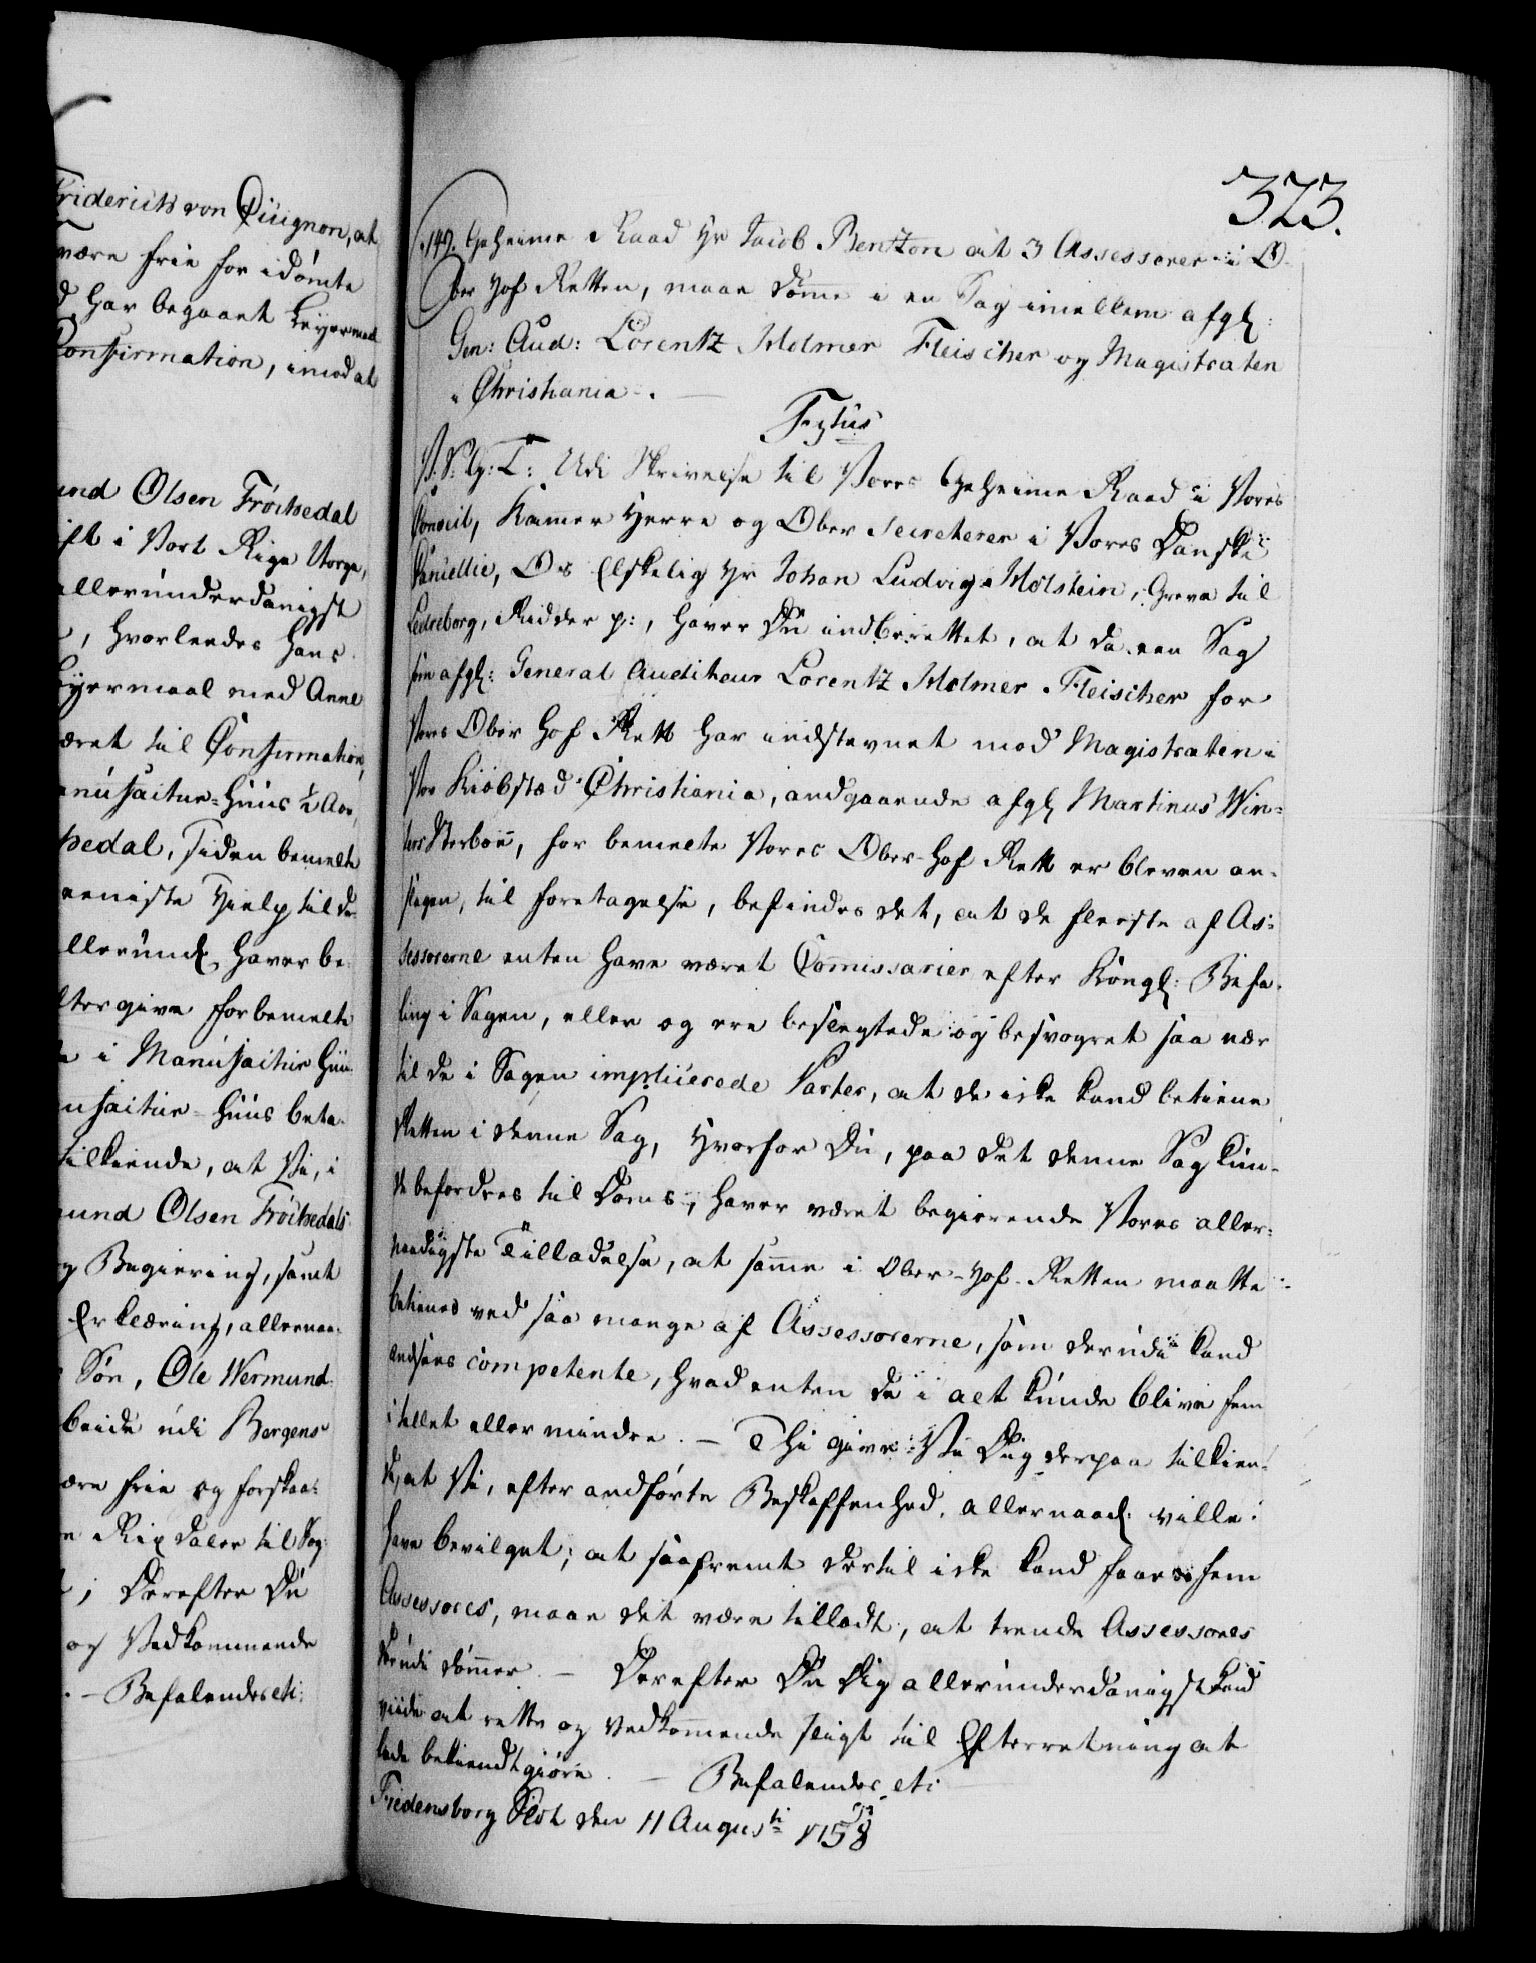 Friderich von Qüignon, at
være frie for idømte
har begaaet Leyermaal
Confirmation, imod at
Olsen Fröisedal
i Vort Rige Norge,
allerunderdanigst
, hvorledes hans
Leyermaal med Anne
været til Confirmation,
Manufactur-Huus ½ Aar,
sedal, siden bemelte
eeniste Hielp til de
allerund: haver be
eftergive forbemelte
i Manufactur Huu
Manufactur-Huus beta-
tilkiende, at Vi, i
mund Olsen Fröisedals
og Begiering, samt
Erklæring, allernaa-
Søn, Ole Wermund-
arbeide udi Bergens
være frie og forskaa-
Rixdaler til Sog-
; Derefter Du
og Vedkommende
. – Befalendes etc:
323.
149. Geheime Raad Hr Jacob Bentzon at 3 Assessorer i O-
ber Hof Retten, maae dømme i en Sag imellem afgl:
Gen: Aud: Lorentz Holmer Fleischer og Magistraten
i Christiania.
Fytus
V. S. G: T: Udi Skrivelse til Vores Geheime Raad i Vores
Conseil, Kammer Herre og Ober Secreterer i Vores Danske
Cancellie, Os Elskelig Hr Johan Ludvig Holstein, Greve til
Ledreborg, Ridder p:, haver Du indberettet, at da een Sag
som afgl: General Auditeur Lorentz Holmer Fleischer for
Vores Ober Hof Rett har indstevnet mod Magistraten i
Vor Kiøbstæd Christiania, andgaaende afgl Martinus Win-
ters Sterboe, for bemelte Vores Ober-Hof Rett er bleven an-
slagen, til foretagelse, befindes det, at de fleeste af As-
sessorerne enten have været Commissarier efter Kongl: Befa-
ling i Sagen, eller og ere beslegtede og besvogret saa nær
til de i Sagen implicerede Parter, at de icke kand betiene
Retten i denne Sag, Hvorfor Du, paa det denne Sag kun-
de befordres til Doms, haver været begierende Vores aller-
naadigste Tilladelse, at samme i Ober-Hof-Retten maatte
betienes ved saa mange af Assessorerne, som derudi kand
andsees competente, hvad enten de i alt kunde blive fem
i tallet eller mindre. – Thi give Vi Dig derpaa tilkien-
de, at Vi, efter andførte Beskaffenhed, allernaad: ville
have bevilget, at saafremt dertil icke kand faaes fem
Assessores, maae det være tilladt, at trende Assessores
derudi dømmer. – Derefter Du Dig allerunderdanigst haver
at rette og Vedkommende sligt til Efterretning at
lade bekiendtgiøre. – Befalendes etc:
Fredensborg Slot den 11 Augusti 1758